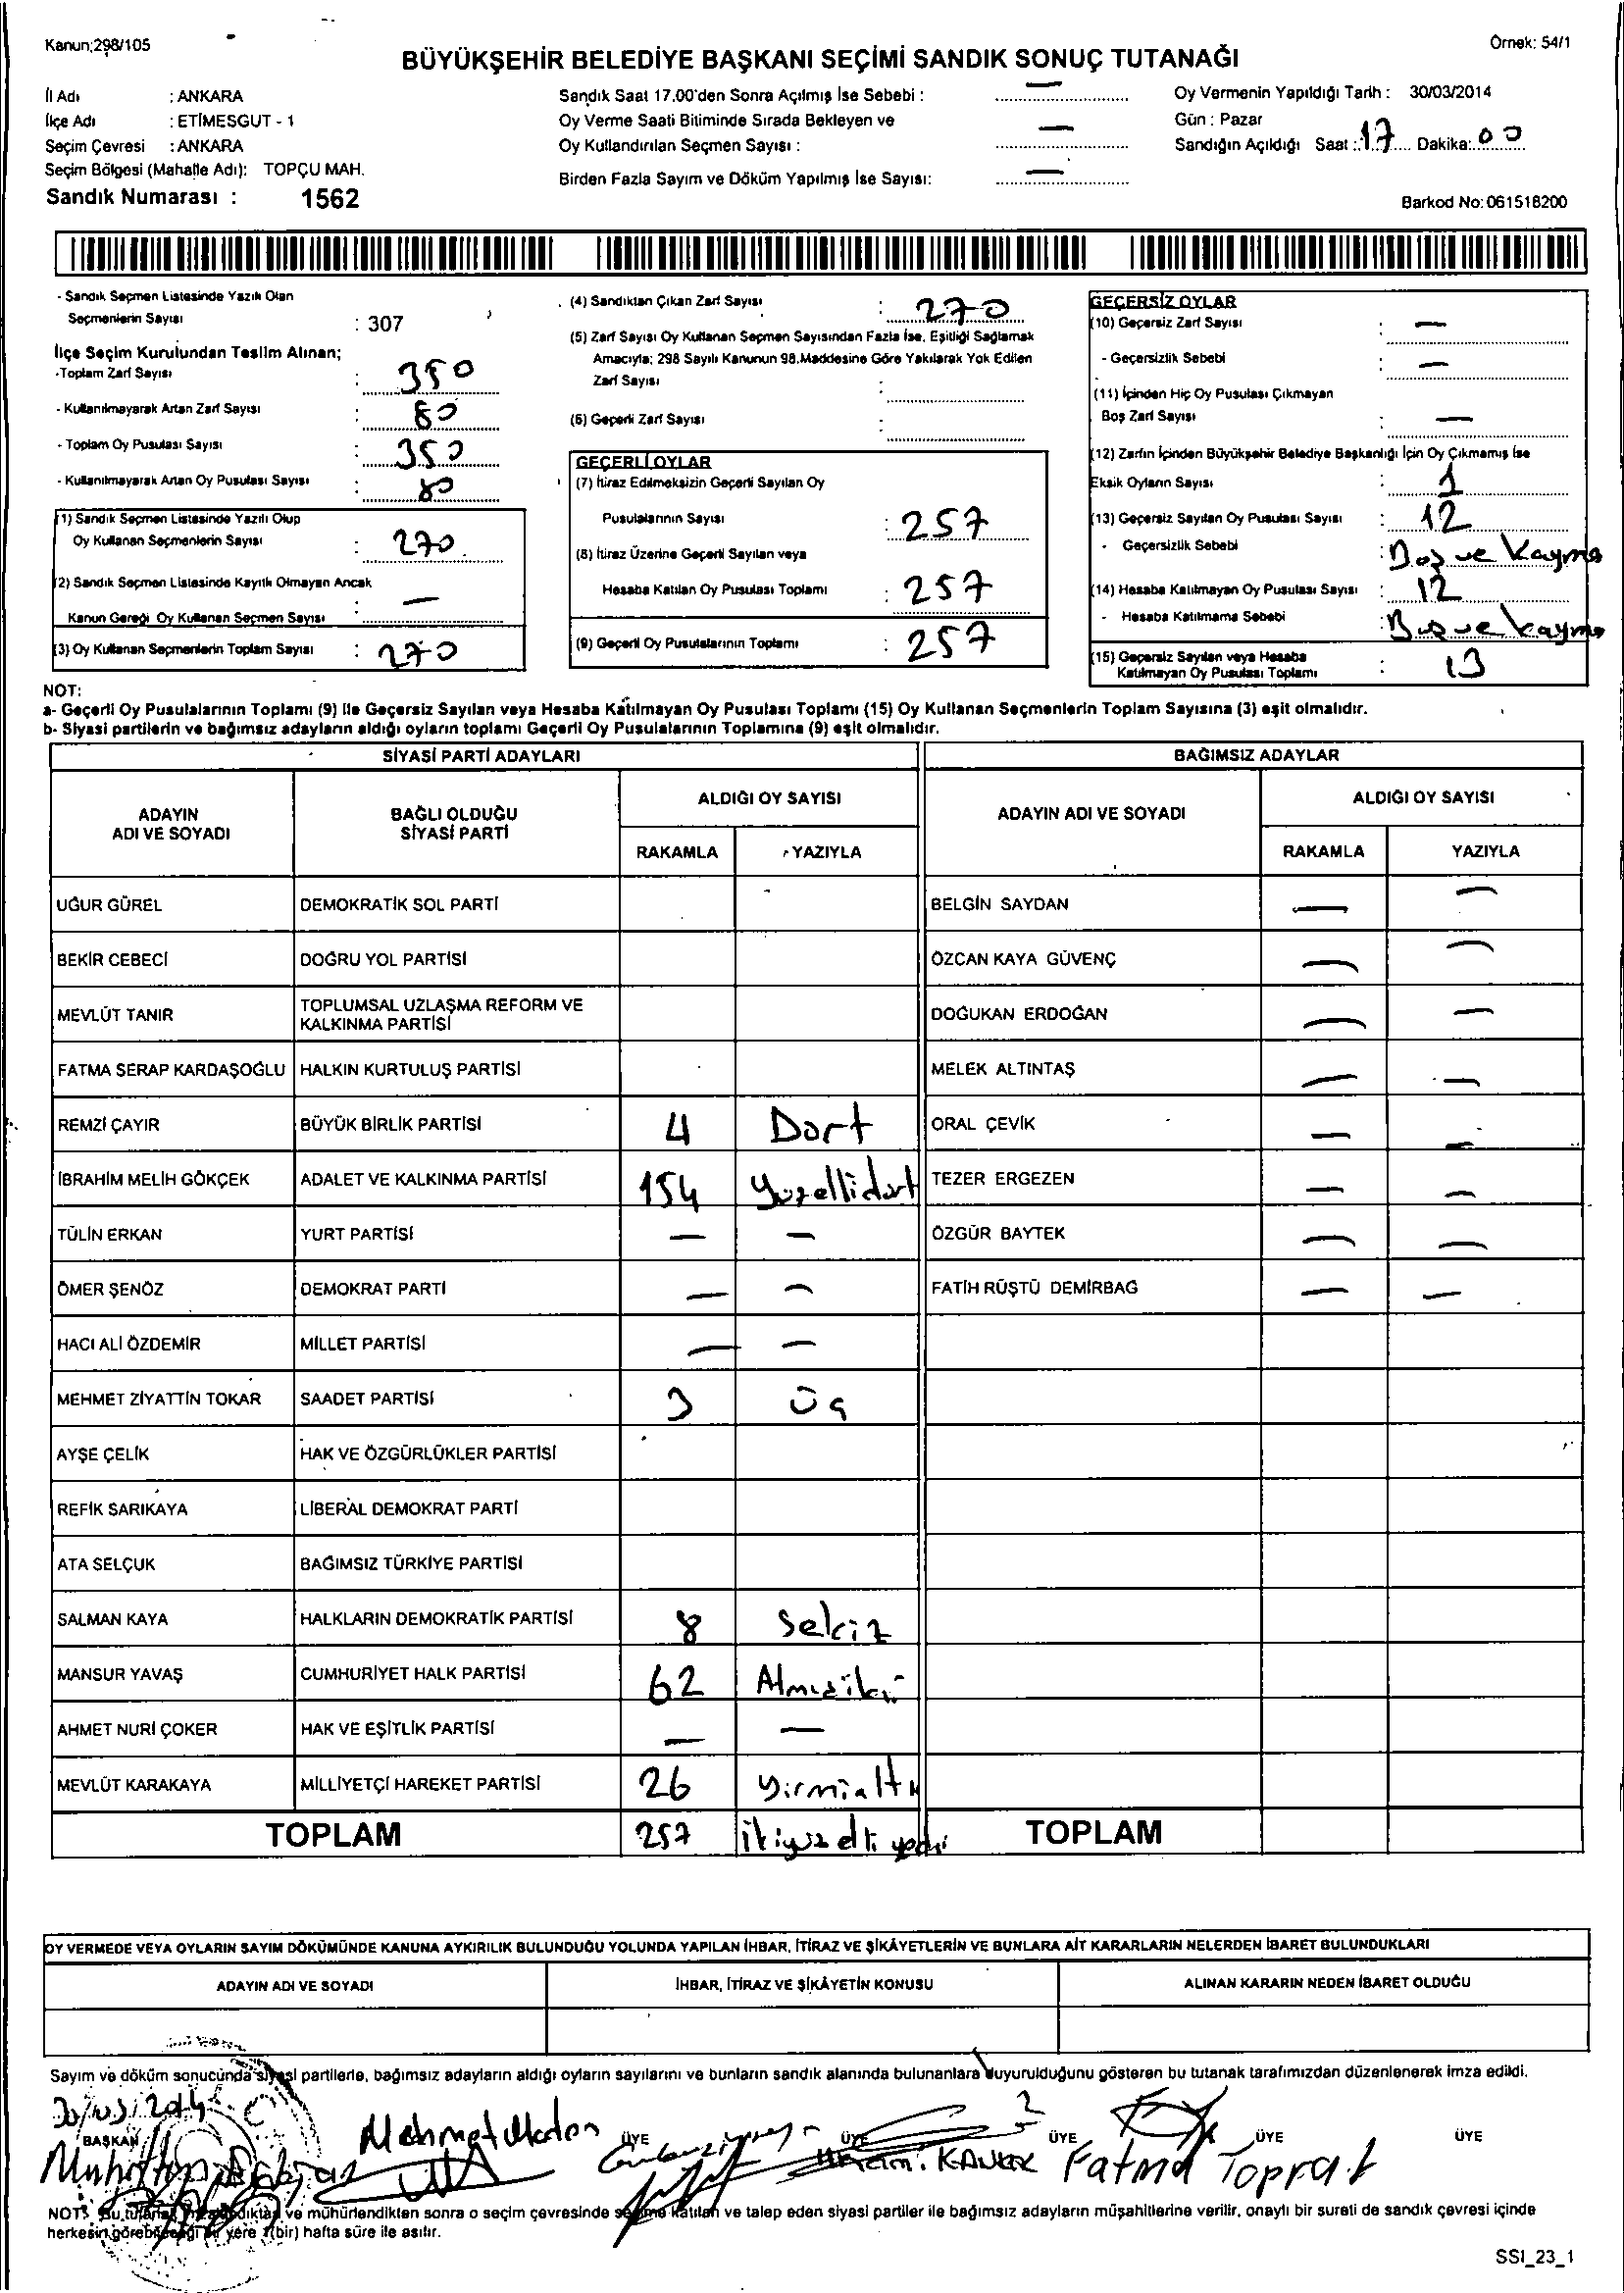 Kanun;298/105
Örnek: 54/1
BÜYÜKŞEHİR BELEDİYE BAŞKANI SEÇİMİ SANDIK SONUÇ TUTANAĞI
İl Adı : ANKARA
İlçe Adı : ETİMESGUT - 1
Seçim Çevresi : ANKARA
Seçim Bölgesi (Mahalle Adı): TOPÇU MAH.
Sandık Numarası : 1562
Sandık Saat 17.00'den Sonra Açılmış İse Sebebi : —
Oy Verme Saati Bitiminde Sırada Bekleyen ve
Oy Kullandırılan Seçmen Sayısı : —
Birden Fazla Sayım ve Döküm Yapılmış İse Sayısı: —
Oy Vermenin Yapıldığı Tarih : 30/03/2014
Gün : Pazar
Sandığın Açıldığı Saat : 17 Dakika: 00
Barkod No: 061518200
- Sandık Seçmen Listesinde Yazılı Olan
Seçmenlerin Sayısı : 307
İlçe Seçim Kurulundan Teslim Alınan;
-Toplam Zarf Sayısı : 350
- Kullanılmayarak Artan Zarf Sayısı : 80
- Toplam Oy Pusulası Sayısı : 350
- Kullanılmayarak Artan Oy Pusulası Sayısı : 80
(1) Sandık Seçmen Listesinde Yazılı Olup
Oy Kullanan Seçmenlerin Sayısı : 270
(2) Sandık Seçmen Listesinde Kayıtlı Olmayan Ancak
Kanun Gereği Oy Kullanan Seçmen Sayısı : —
(3) Oy Kullanan Seçmenlerin Toplam Sayısı : 270
(4) Sandıktan Çıkan Zarf Sayısı : 270
(5) Zarf Sayısı Oy Kullanan Seçmen Sayısından Fazla İse, Eşitliği Sağlamak
Amacıyla; 298 Sayılı Kanunun 98.Maddesine Göre Yakılarak Yok Edilen
Zarf Sayısı :
(6) Geçerli Zarf Sayısı :
GEÇERLİ OYLAR
(7) İtiraz Edilmeksizin Geçerli Sayılan Oy
Pusulalarının Sayısı : 257
(8) İtiraz Üzerine Geçerli Sayılan veya
Hesaba Katılan Oy Pusulası Toplamı : 257
(9) Geçerli Oy Pusulalarının Toplamı : 257
GEÇERSİZ OYLAR
(10) Geçersiz Zarf Sayısı : —
- Geçersizlik Sebebi : —
(11) İçinden Hiç Oy Pusulası Çıkmayan
Boş Zarf Sayısı : —
(12) Zarfın İçinden Büyükşehir Belediye Başkanlığı İçin Oy Çıkmamış İse
Eksik Oyların Sayısı : 1
(13) Geçersiz Sayılan Oy Pusulası Sayısı : 12
- Geçersizlik Sebebi : Boş ve Kayma
(14) Hesaba Katılmayan Oy Pusulası Sayısı : 12
- Hesaba Katılmama Sebebi : Boş ve kayma
(15) Geçersiz Sayılan veya Hesaba
Katılmayan Oy Pusulası Toplamı : 13
NOT:
a- Geçerli Oy Pusulalarının Toplamı (9) İle Geçersiz Sayılan veya Hesaba Katılmayan Oy Pusulası Toplamı (15) Oy Kullanan Seçmenlerin Toplam Sayısına (3) eşit olmalıdır.
b- Siyasi partilerin ve bağımsız adayların aldığı oyların toplamı Geçerli Oy Pusulalarının Toplamına (9) eşit olmalıdır.
SİYASİ PARTİ ADAYLARI BAĞIMSIZ ADAYLAR
ADAYIN ADI VE SOYADI BAĞLI OLDUĞU SİYASİ PARTİ ALDIĞI OY SAYISI ADAYIN ADI VE SOYADI ALDIĞI OY SAYISI
RAKAMLA YAZIYLA RAKAMLA YAZIYLA
UĞUR GÜREL DEMOKRATİK SOL PARTİ BELGİN SAYDAN — —
BEKİR CEBECİ DOĞRU YOL PARTİSİ ÖZCAN KAYA GÜVENÇ — —
MEVLÜT TANIR TOPLUMSAL UZLAŞMA REFORM VE KALKINMA PARTİSİ DOĞUKAN ERDOĞAN — —
FATMA SERAP KARDAŞOĞLU HALKIN KURTULUŞ PARTİSİ MELEK ALTINTAŞ — —
REMZİ ÇAYIR BÜYÜK BİRLİK PARTİSİ 4 Dört ORAL ÇEVİK — —
İBRAHİM MELİH GÖKÇEK ADALET VE KALKINMA PARTİSİ 154 Yüzellidört TEZER ERGEZEN — —
TÜLİN ERKAN YURT PARTİSİ — — ÖZGÜR BAYTEK — —
ÖMER ŞENÖZ DEMOKRAT PARTİ — — FATİH RÜŞTÜ DEMİRBAĞ — —
HACI ALİ ÖZDEMİR MİLLET PARTİSİ — —
MEHMET ZİYATTİN TOKAR SAADET PARTİSİ 3 üç
AYŞE ÇELİK HAK VE ÖZGÜRLÜKLER PARTİSİ
REFİK SARIKAYA LİBERAL DEMOKRAT PARTİ
ATA SELÇUK BAĞIMSIZ TÜRKİYE PARTİSİ
SALMAN KAYA HALKLARIN DEMOKRATİK PARTİSİ 8 Sekiz
MANSUR YAVAŞ CUMHURİYET HALK PARTİSİ 62
AHMET NURİ ÇOKER HAK VE EŞİTLİK PARTİSİ — —
MEVLÜT KARAKAYA MİLLİYETÇİ HAREKET PARTİSİ 26 Yirmialtı
TOPLAM 257 ikiyüzelli yedi TOPLAM
OY VERMEDE VEYA OYLARIN SAYIM DÖKÜMÜNDE KANUNA AYKIRILIK BULUNDUĞU YOLUNDA YAPILAN İHBAR, İTİRAZ VE ŞİKÂYETLERİN VE BUNLARA AİT KARARLARIN NELERDEN İBARET BULUNDUKLARI
ADAYIN ADI VE SOYADI İHBAR, İTİRAZ VE ŞİKÂYETİN KONUSU ALINAN KARARIN NEDEN İBARET OLDUĞU
Sayım ve döküm sonucunda siyasi partilerle, bağımsız adayların aldığı oyların sayılarını ve bunların sandık alanında bulunanlara duyurulduğunu gösteren bu tutanak tarafımızdan düzenlenerek imza edildi.
30/03/2014
BAŞKAN ÜYE ÜYE ÜYE ÜYE ÜYE
Mehmet Fatma Toprak
NOT: Bu tutanak ve mühürlendikten sonra o seçim çevresinde seçime katılan ve talep eden siyasi partiler ile bağımsız adayların müşahitlerine verilir, onaylı bir sureti de sandık çevresi içinde
herkesin görebileceği bir yere 1(bir) hafta süre ile asılır.
SSI_23_1